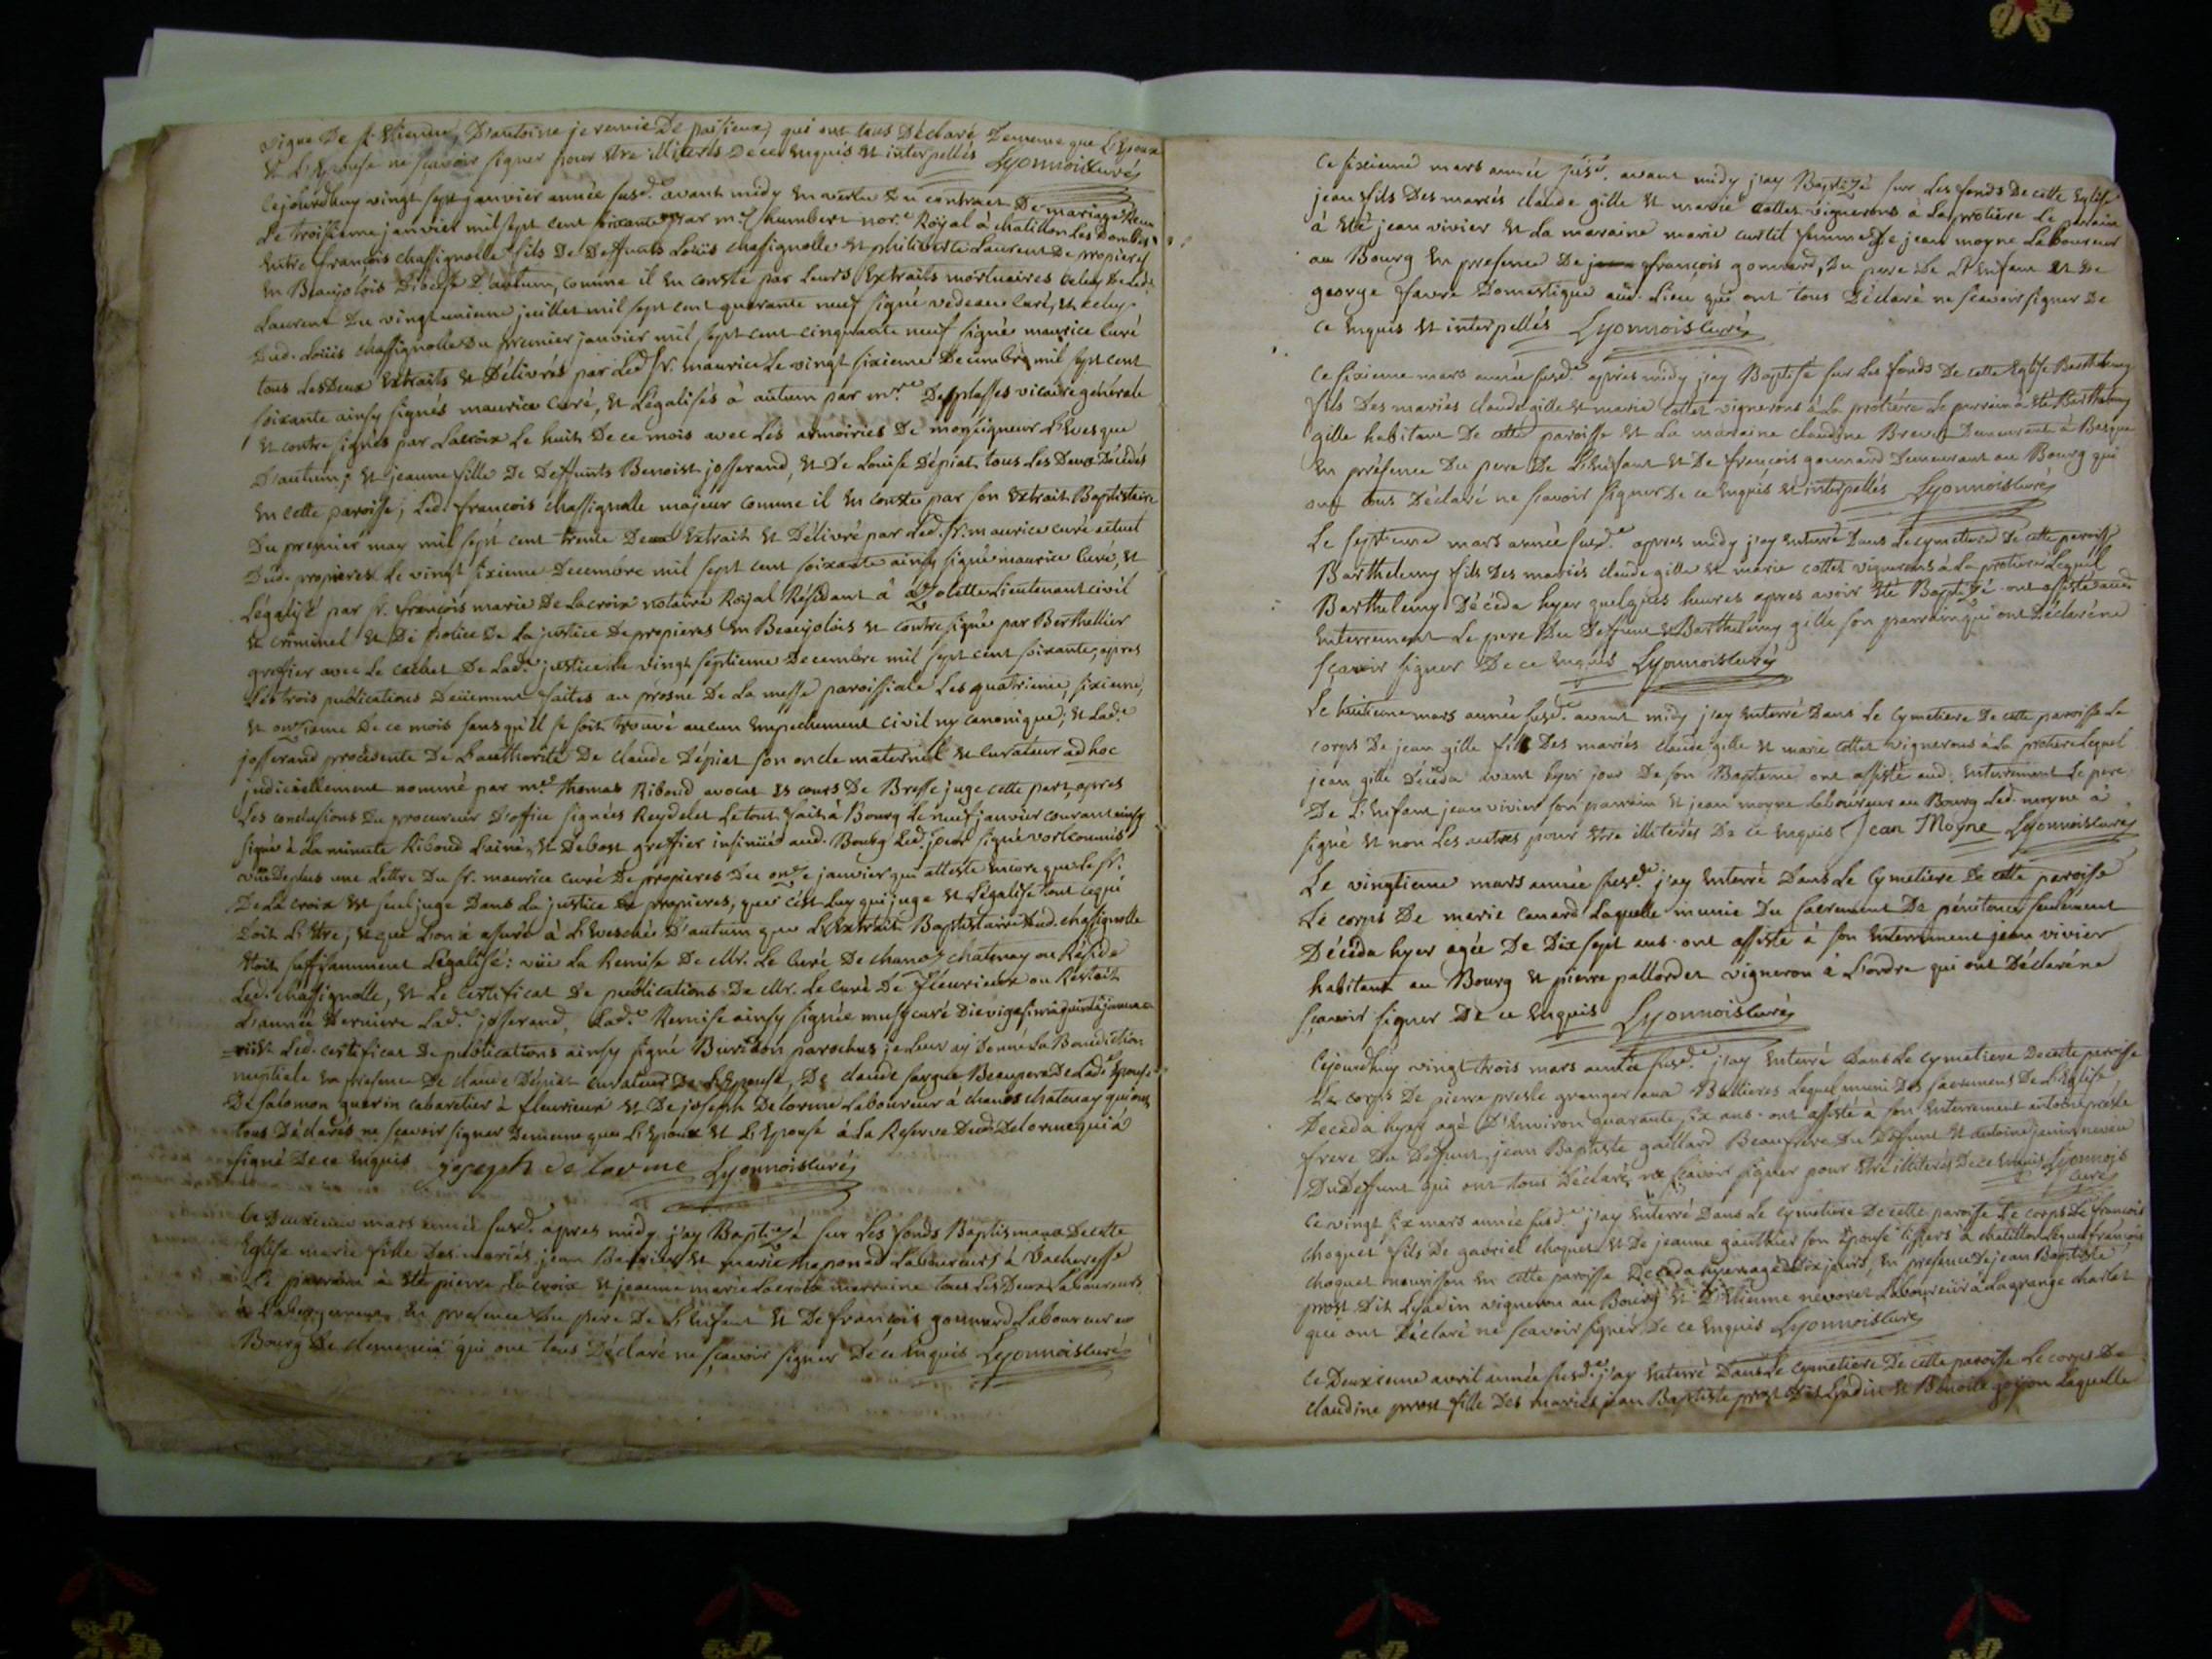 vigne De st. Etienne, D'antoine jeremie De paisieux, qui ont tous Déclaré Demême que L'Epoux
et L'Epouse ne sçavoir signer pour être illiterés De ce enquis et interpellés Lyonnois curé
Cejourdhuy vingt sept janvier année susd.e avant midy en vertu Du contract De mariage
Le troisieme janvier mil sept cent soixante par m.e humbert nor.e Royal à chatillon Les Dombes
Entre françois chassignolle fils De Deffunts Loüis chassignolle et philiberte Laurent De propieres
En Beaujolois Diocese D'autun, comme il en conste par Leurs Extraits mortuaires celuy De Lad.e
Laurent Du vingt unieme juillet mil sept cent quarante neuf signé vedeau curé, et celuy
Dud. Loüis chassignolle Du premier janvier mil sept cent cinquante neuf signé maurice Curé
tous Les Deux Extraits et Délivrés par Led. sr. maurice Le vingt sixieme Decembre mil sept cent
soixante ainsy signés maurice Curé, et Légalisés à autun par mr. Desplasses vicaire générale
et contre signés par Lacroix Le huit De ce mois avec Les armoiries De monseigneur L'Evesque
D'autun; et jeanne fille De Deffunts Benoist josserand, et De Louise Dépiat tous Les Deux Décédés
en cette paroisse; Led. françois chassignolle majeur comme il en conste par son Extrait Baptistaire
Du premier may mil sept cent trente Deux Extrait et Délivré par Led. sr. maurice curé actuel
Dud. propieres Le vingt sixieme Decembre mil sept cent soixante ainsy signé maurice Curé, et
Légalisé par sr. françois marie De Lacroix notaire Royal Résidant à aZolette Lieutenant civil
et criminel et De police De La justice De propieres en Beaujolois et contre signé par Berthellier
greffier avec Le cachet De Lad.e justice Le vingt septieme Decembre mil sept cent soixante, apres
Les trois publications Deüement faites au prosne De La messe paroissiale Les quatrieme, sixieme,
et onZieme De ce mois sans qu'il se soit trouvé aucun empechement civil ny canonique; et Lad.e
josserand procedente De L'authorité De claude Dépiat son oncle maternel et curateur ad hoc
judiciellement nommé par m.e thomas Riboud avocat es cours De Bresse juge cette part, apres
Les conclusions Du procureur D'office signées Reydelet Le tout fait à Bourg Le neuf janvier courant ainsy
signé à La minute Riboud L'ainé, et Debost greffier insinüé aud. Bourg Led. jour signé vorl commis
vüe De plus une Lettre Du sr. maurice curé De propieres Du onZe janvier qui atteste encore que Le sr.
De La croix est seul juge Dans La justice De propieres, que c'est Luy qui juge et Légalise tout ce qui
Doit L'Etre, et que L'on à assuré à L'Evesché D'autun que L'Extrait Baptistaire Dud. chassignolle
Etoit suffisamment Légalisé: vüe La Remise De Mr. Le Curé De chanoz chatenay ou Réside
Led. chassignolle, et Le Certificat De publications De Mr. Le Curé De fleurieux ou Restoit
L'année Derniere Lad.e josserand, Lad.e Remise ainsy signée curé
Led. certificat De publications ainsy signé Buridon parochus je Leur ay Donné La Benediction
nuptiale en presence De claude Dépiat curateur De L'Epouse, De claude Beaupere De Lad.e Epouse
De salomon guerin cabaretier à fleurieux et De joseph Delorme Laboureur à chanos chatenay qui ont
tous Déclarés ne sçavoir signer Demême que L'Epoux et L'Epouse à La Reserve Dud. Delorme qui à
signé De ce enquis joseph de lorme Lyonnois curé
Ce Deuxieme mars année susd.e apres midy j'ay BaptiZé sur Les fonds Baptismaux De cette
Eglise marie fille Des mariés jean et marie Laboureurs à vacheresse
Le parrain à été pierre La croix et jeanne marie Lacroix marraine tous Les Deux Laboureurs
à en presence Du pere De L'Enfant et De françois gonnard Laboureur au
Bourg De clemencia qui ont tous Déclaré ne sçavoir signer De ce Enquis Lyonnois curé
Ce sixieme mars année susd.e avant midy j'ay BaptiZé sur Les fonds De cette Eglise
jean fils Des mariés claude gille et marie Cottet vignerons à La protiere Le parrain
à eté jean vivier et La marraine marie curtil femme De jean moyne Laboureur
au Bourg en presence De françois gonnard, Du pere De L'Enfant et De
george favre Domestique aud. Lieu qui ont tous Déclaré ne sçavoir signer De
ce Enquis et interpellés Lyonnois curé
Ce sixieme mars année susd.e apres midy j'ay Baptisé sur Les fonds De cette Eglise Barthelemy
fils Des mariés claude gille et marie Cottet vignerons à La protiere Le parrain à été Barthelemy
gille habitant De cette paroisse et La maraine claudine Brevet Demeurant à
En présence Du pere De L'Enfant et De françois gonnard Demeurant au Bourg qui
ont tous Déclaré ne sçavoir signer De ce enquis et interpellés Lyonnois curé
Le septieme mars année susd.e apres midy j'ay enterré Dans Le cymetiere De cette paroisse
Barthelemy fils Des mariés claude gille et marie cottet vignerons à La protiere Lequel
Barthelemy Décéda hyer quelques heures apres avoir été BaptiZé ont assisté aud.
Enterrement Le pere Du Deffunt et Barthelemy gille son parrain qui ont Déclaré ne
sçavoir signer De ce enquis Lyonnois curé
Le huitieme mars année susd.e avant midy j'ay enterré Dans Le Cymetiere De cette paroisse Le
corps De jean gille fils Des mariés claude gille et marie cottet vignerons à La protiere Lequel
jean gille Décéda avant hyer jour De son Bapteme ont assisté aud. Enterrement Le pere
De L'Enfant jean vivier son parrain et jean moyne Laboureur au Bourg Led. moyne à
signé et non Les autres pour être illiterés De ce enquis Jean Moyne Lyonnois curé
Le vingtieme mars année susd.e j'ay Enterré Dans Le Cymetiere De cette paroisse
Le corps De marie canard Laquelle munie Du sacrement De pénitence seulement
Décéda hyer agée De Dix sept ans ont assisté à son Enterrement jean vivier
habitant au Bourg et pierre pallordet vigneron à L'ordre qui ont Déclaré ne
sçavoir signer De ce Enquis Lyonnois curé
Cejourdhuy vingt trois mars année susd.e j'ay Enterré Dans Le cymetiere De cette paroisse
Le corps De pierre presle granger aux Bullieres Lequel muni Des sacremens De L'Eglise
Deceda hyer agé D'Environ quarante six ans ont assisté à son Enterrement antoine presle
frere Du Deffunt, jean Baptiste gaillard Beaufrere Du Deffunt et antoine neveu
Du Deffunt qui ont tous Déclaré ne sçavoir signer pour être illiterés De ce enquis Lyonnois
curé
Ce vingt six mars année susd.e j'ay Enterré Dans Le Cymetiere De cette paroisse Le corps De françois
choquet fils De gabriel choquet et De jeanne gauthier son Epouse tissiers à chatillon Lequel françois
choquet nourisson en cette paroisse Deceda hyer agé Dix jours, en presence De jean Baptiste
prost Dit Lyadin vigneron au Bourg et D'Etienne nevoret Laboureur à La grange charlet
qui ont Déclaré ne sçavoir signer De ce Enquis Lyonnois curé
Ce Deuxieme avril année susd.e j'ay Enterré Dans Le cymetiere De cette paroisse Le corps De
claudine prost fille Des mariés jean Baptiste prost Dit Lyadin et Benoite goyon Laquelle